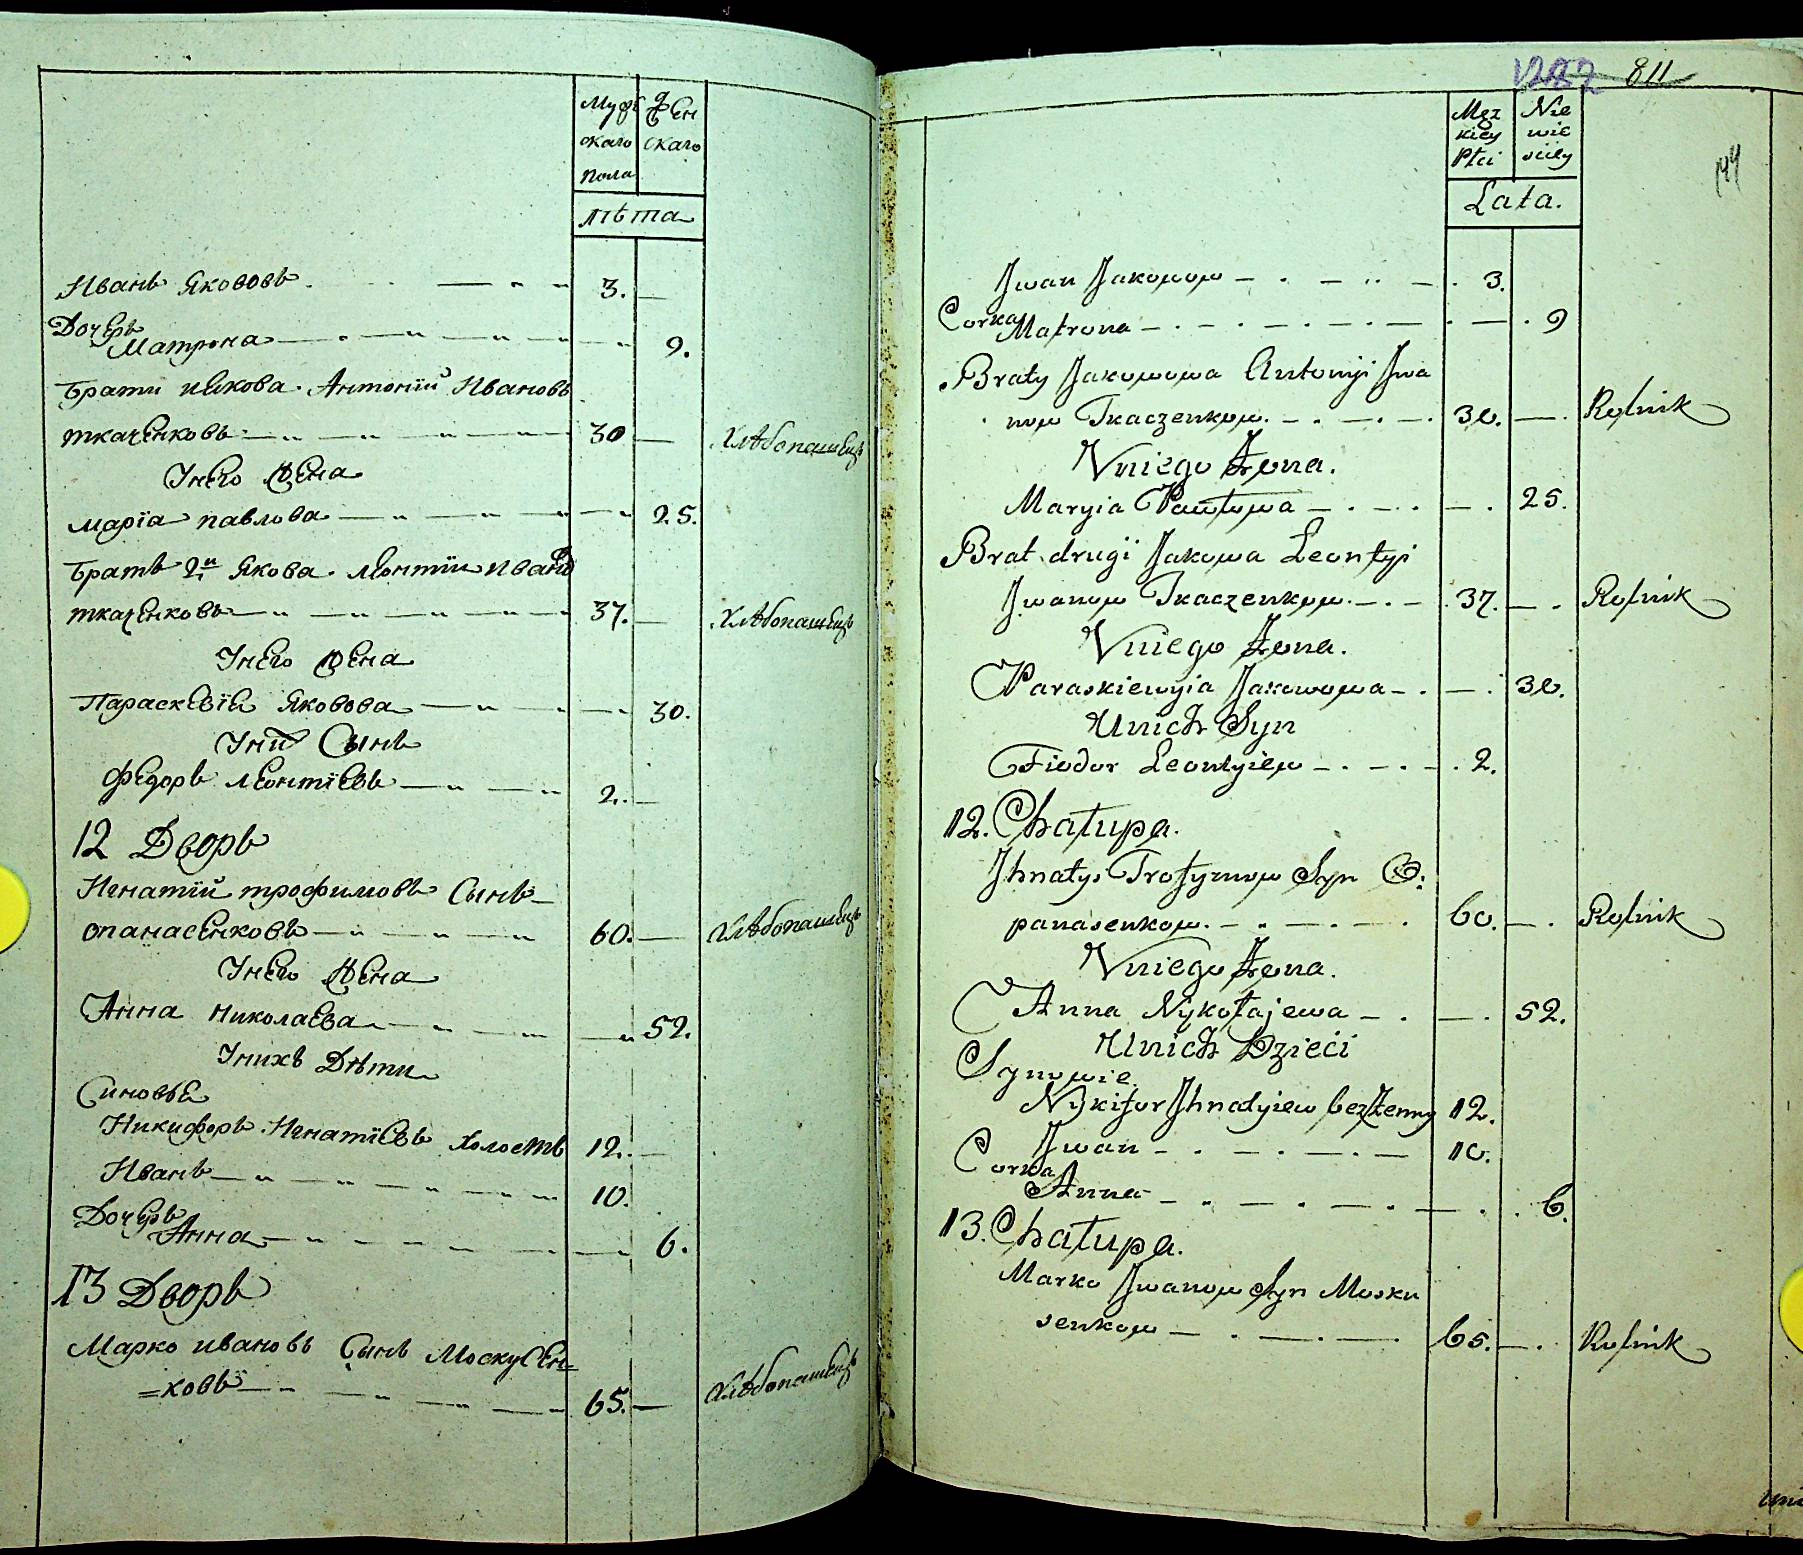 Мужскаго пола
Женскаго
лѣта
Иванъ Якововъ 3.
Дочерь
Матрона 9.
Брати Якова Антонїй Ивановъ
ткаченковъ 30 Хлѣбопашецъ
Унего Жена
Марїа павлова 25.
Братъ 2й Якова Леонтїи Ивановъ
ткаченковъ 37. Хлѣбопашецъ
Унего Жена
Параскевїи Яковова 30.
Унихъ Сынъ
Федоръ Леонтїевъ 2.
12 Дворъ
Игнатїй трофимовъ Сынъ
опанасенковъ 60. Хлѣбопашецъ
Унего Жена
Анна николаева 52.
Унихъ Дѣти
Синовья
Никифоръ Игнатїевъ холостъ 12.
Иванъ 10.
Дочерь
Анна 6.
13 Дворъ
Марко ивановъ Сынъ Москусен=
=ковъ 65. Хлѣбопашецъ
811
Męz Nie
kiey wie
Płci sciey
Lata.
Jwan Jakowow 3.
Corka
Matrona 9
Braty Jakowowa Antonyi Jwa
now Tkaczenkow. 30. Rolnik
Vniego Żona.
Maryia Pawłowa 25.
Brat drugi Jakowa Leontyi
Jwanow Tkaczenkow. 37. Rolnik
Vniego Żona.
Paraskiewyia Jakowowa 30.
Unich Syn
Fiodor Leontyiew 2.
12. Chałupa.
Jhnatyi Trofymow Syn O:
panasenkow. 60. Rolnik
Vniego Żona.
Anna Nykołajewa 52.
Unich Dzieci
Synowie
Nykifor Jhnatyiew bezżenny 12.
Jwan 10.
Corka
Anna 6.
13. Chałupa.
Marko Jwanow Syn Mosku
senkow 65. Rolnik